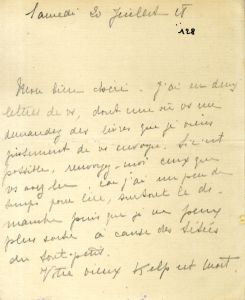 Samedi 20 Juillet 18
128
Mon bien chéri. J'ai eu deux
lettres de vs, dont une où vs me
demandez des livres que je viens
justement de vs envoyer. S'il est
possible, renvoyez-moi ceux que
vs avez lus, car j'ai un peu de
temps pour lire, surtout le di-
manche puisque je ne peux
plus sortir à cause des
du tout-petit.
Votre vieux est mort.